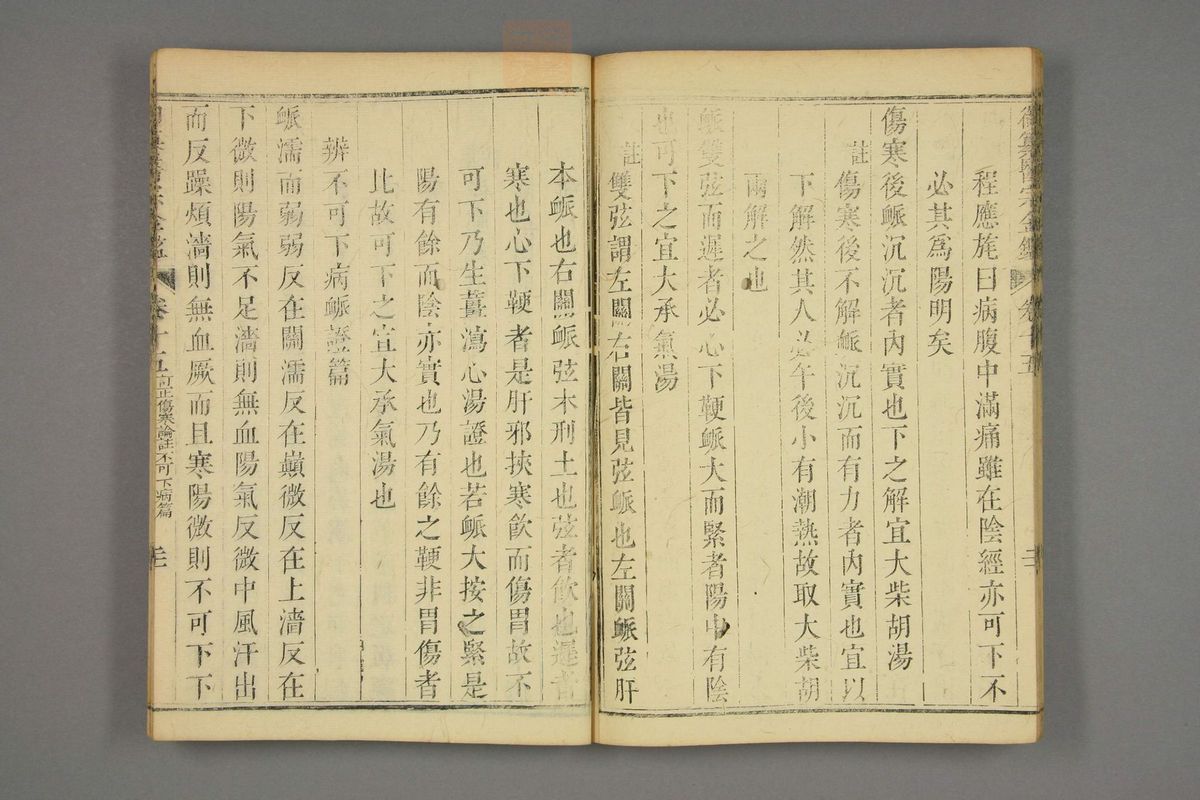 御纂醫宗金鑑 卷十五
程應旄曰病腹中滿痛雖在陰經亦可下不
必其為陽明矣
傷寒後䘑沉沉者內實也下之解宜大柴胡湯
註傷寒後不解䘑沉沉而有力者內實也宜以
下解然其人必午後小有潮熱故取大柴胡
兩解之也
䘑雙弦而遲者必心下鞕䘑大而緊者陽中有陰
也可下之宜大承氣湯
註雙弦謂左關右關皆見弦䘑也左關䘑弦肝
本䘑也右關䘑弦木刑土也弦者飲也遲者
寒也心下鞕者是肝邪挾寒飲而傷胃故不
可下乃生薑瀉心湯證也若䘑大按之緊是
陽有餘而陰亦實也乃有餘之鞕非胃傷者
比故可下之宜大承氣湯也
辨不可下病䘑證篇
䘑濡而弱弱反在關濡反在巔微反在上濇反在
下微則陽氣不足濇則無血陽氣反微中風汗出
而反躁煩濇則無血厥而且寒陽微則不可下下
御纂醫宗金鑑 卷十五 訂正傷寒論註不可下病篇